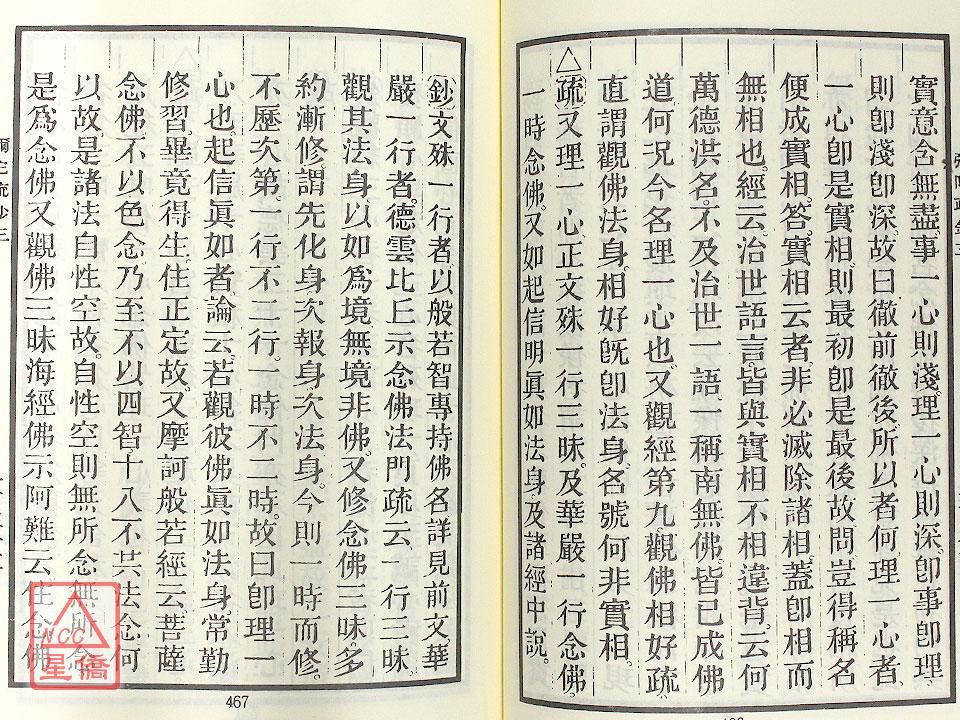 實意含無盡。事一心則淺。理一心則深。卽事卽理。
則卽淺卽深。故曰徹前徹後。所以者何。理一心者。
一心卽是實相。則最初卽是最後故。問。豈得稱名
便成實相。答。實相云者。非必滅除諸相。蓋卽相而
無相也。經云。治世語言。皆與實相不相違背。云何
萬德洪名。不及治世一語。一稱南無佛。皆已成佛
道。何況今名理一心也。又觀經第九觀佛相好。疏
直謂觀佛法身。相好旣卽法身。名號何非實相。
△疏又理一心。正文殊一行三昧。及華嚴一行念佛。
一時念佛。又如起信明眞如法身。及諸經中說。
鈔文殊一行者。以般若智專持佛名。詳見前文。華
嚴一行者。德雲比丘示念佛法門。疏云。一行三昧。
觀其法身。以如爲境。無境非佛。又修念佛三昧。多
約漸修。謂先化身。次報身。次法身。今則一時而修。
不歷次第。一行不二行。一時不二時。故曰卽理一
心也。起信眞如者。論云。若觀彼佛眞如法身。常勤
修習。畢竟得生。住正定故。又摩訶般若經云。菩薩
念佛。不以色念。乃至不以四智。十八不共法念。何
以故。是諸法自性空故。自性空則無所念。無所念
是爲念佛。又觀佛三昧海經。佛示阿難云。住念佛
467
NCC
星僑